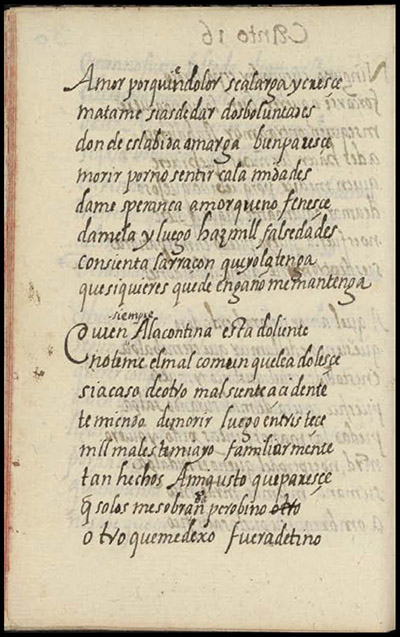 Canto 16
Amor por quiē dolor se alarga y cresçe
matame si as de dar dos boluntades
donde es la bida amarga bien paresçe
morir por no sentir calamidades
dame speranca amor que no fenesçe
damela y luego haz mill falsedades
consienta la rraçon que yo la tenga
que si quieres quede engaño me mantenga
siempre
Quien Ala contina esta doliente
no teme el mal comun que le adolesçe
si acaso de otro mal siente acidente
temiendo de morir luego entristece
mill males temi a yo familiarmente
tan hechos Ami gusto que paresçe
q̄ solos me sobran pero bino otro
otro que me dexo fuera de tino